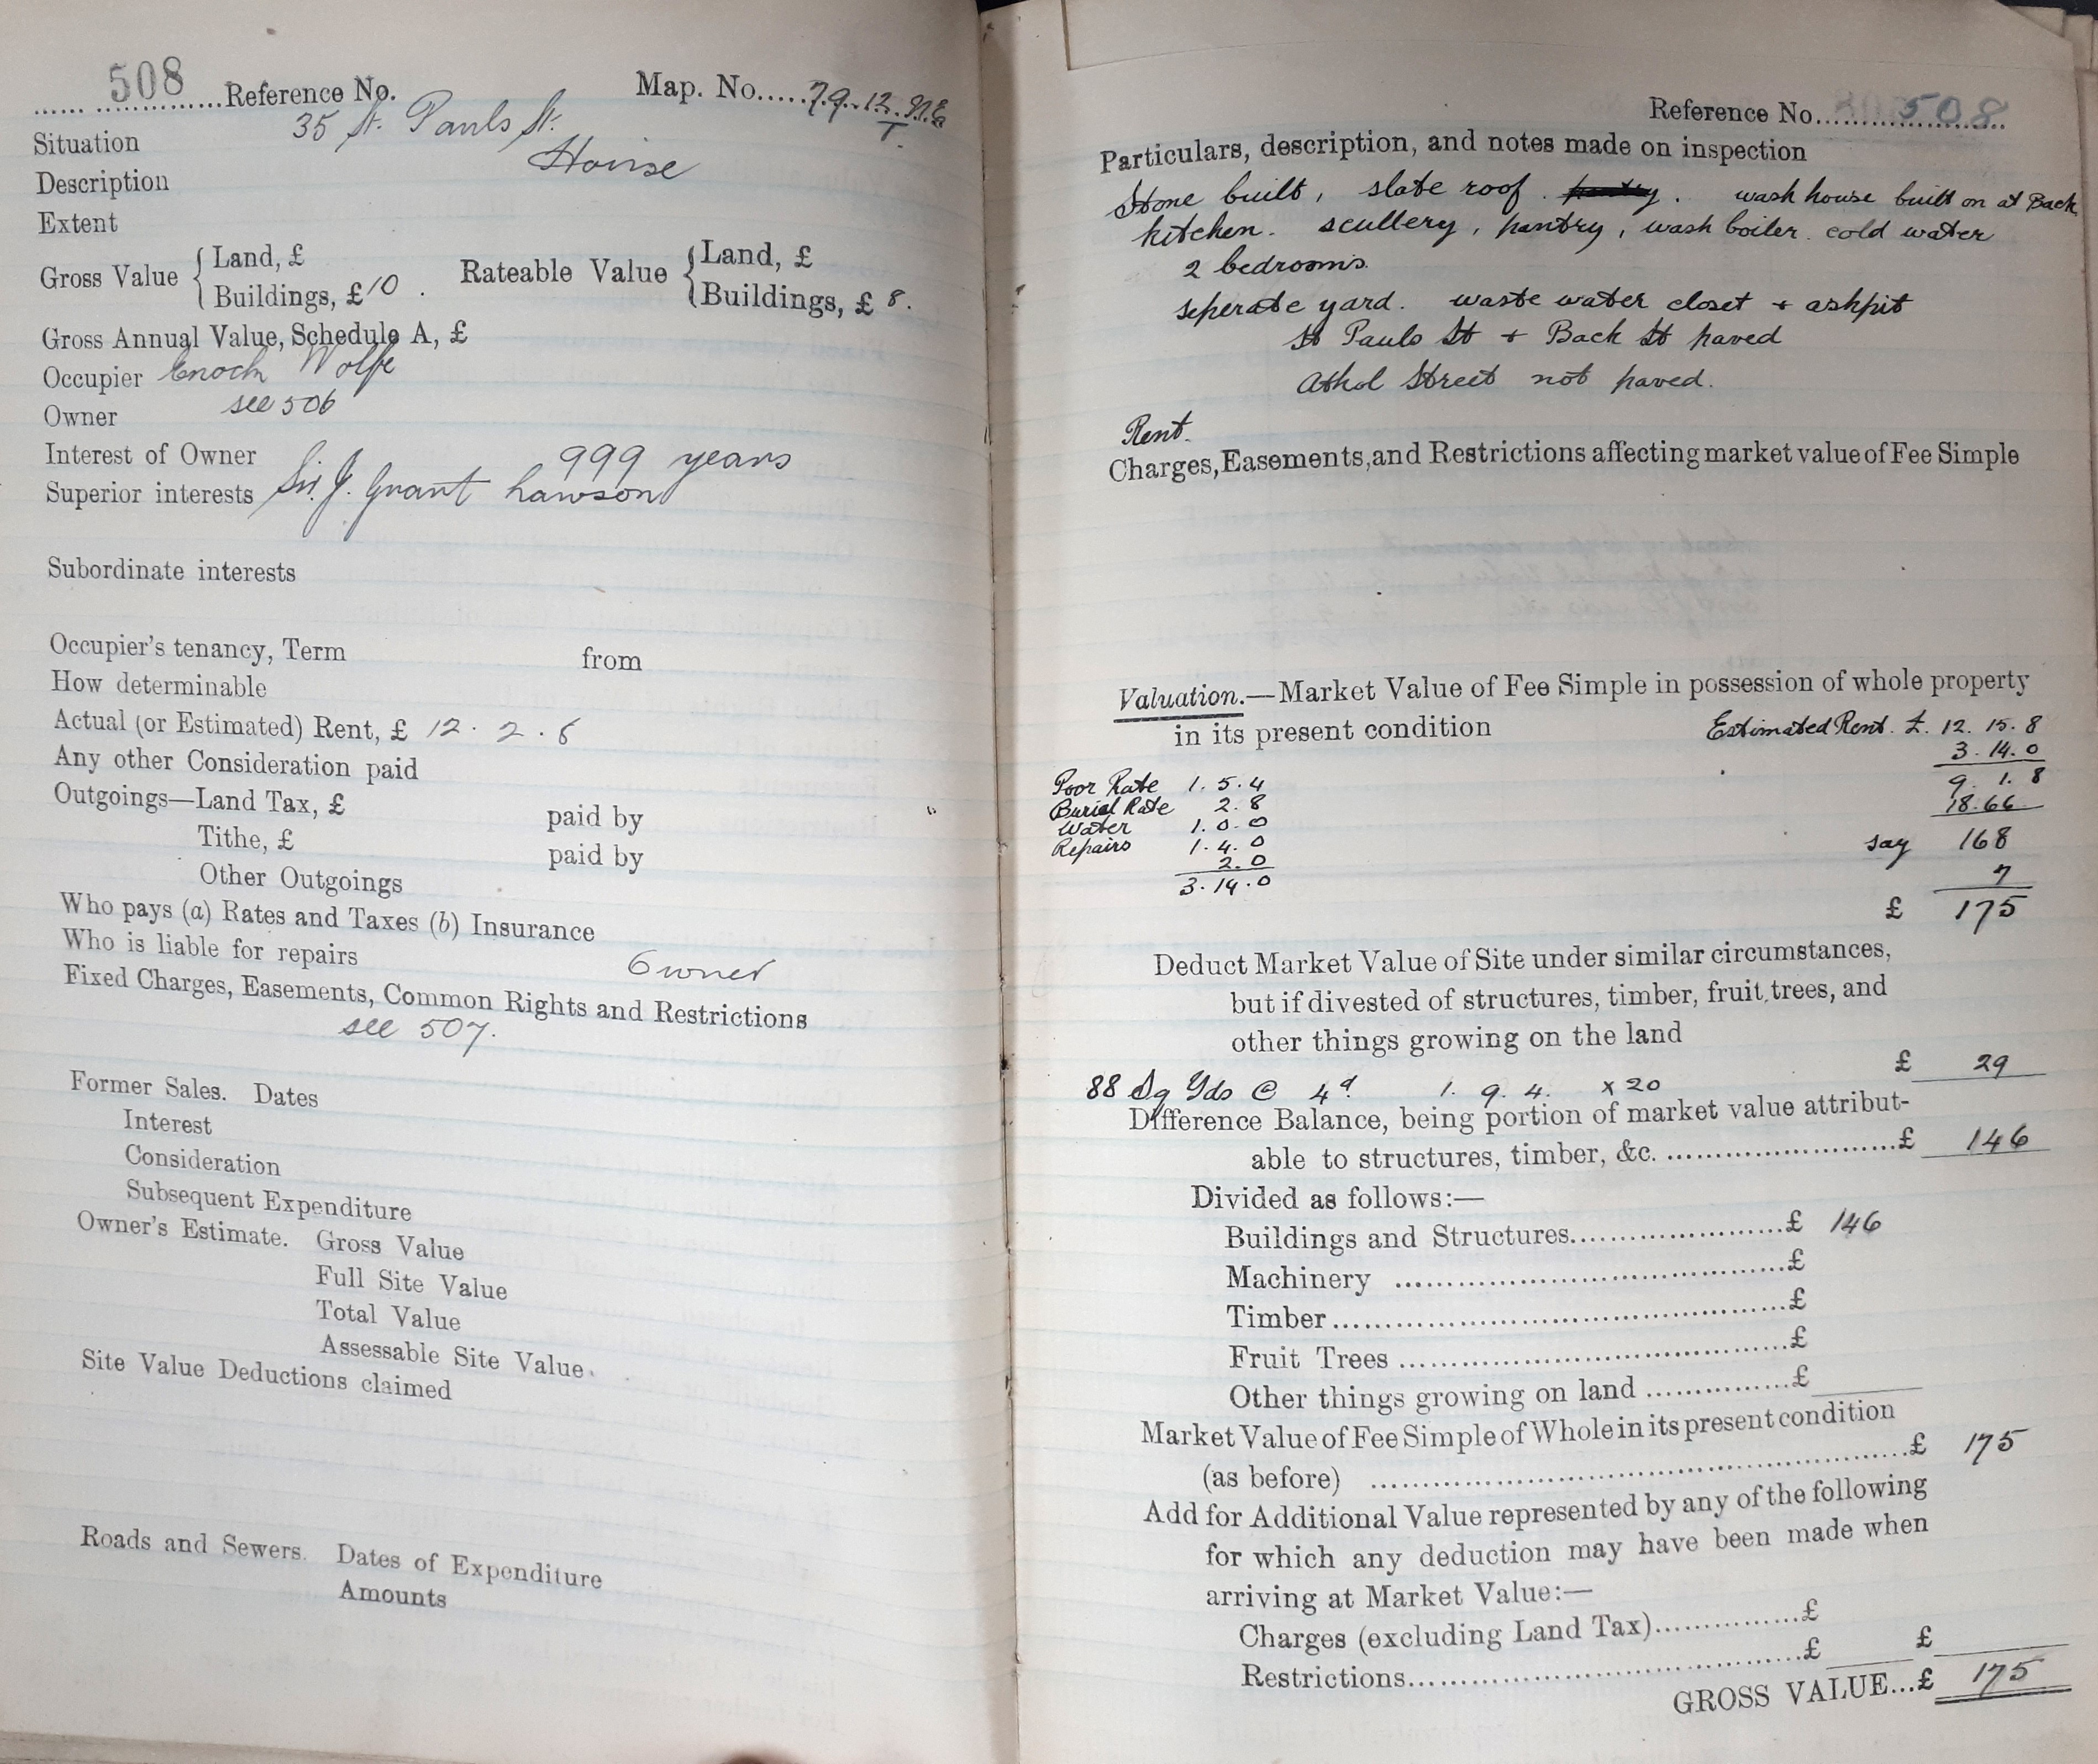 508 Reference No. Map. No. 79.12.N.E.
T.
Situation 35 St. Pauls St.
Description House
Extent
Gross Value { Land, £ Rateable Value { Land, £
Buildings, £ 10. Buildings, £ 8.
Gross Annual Value, Schedule A, £
Occupier Enoch Wolfe
Owner see 506
Interest of Owner 999 years
Superior interests Sir. J. Grant Lawson
Subordinate interests
Occupier's tenancy, Term from
How determinable
Actual (or Estimated) Rent, £ 12. 2. 6
Any other Consideration paid
Outgoings—Land Tax, £ paid by
Tithe, £ paid by
Other Outgoings
Who pays (a) Rates and Taxes (b) Insurance
Who is liable for repairs Owner
Fixed Charges, Easements, Common Rights and Restrictions
see 507.
Former Sales. Dates
Interest
Consideration
Subsequent Expenditure
Owner's Estimate. Gross Value
Full Site Value
Total Value
Assessable Site Value.
Site Value Deductions claimed
Roads and Sewers. Dates of Expenditure
Amounts
Reference No. 508
Particulars, description, and notes made on inspection
Stone built, slate roof. pantry. wash house built on at Back
kitchen. scullery, pantry, wash boiler. cold water
2 bedrooms.
seperate yard. waste water closet + ashpit
St Pauls St + Back St paved
Athol Street not paved.
Rent.
Charges, Easements, and Restrictions affecting market value of Fee Simple
Valuation.—Market Value of Fee Simple in possession of whole property
in its present condition Estimated Rent. £. 12. 15. 8
3. 14. 0
Poor Rate 1. 5. 4 9. 1. 8
Burial Rate 2. 8 18.66
Water 1. 0. 0
Repairs 1. 4. 0 say 168
2. 0 7
3. 14. 0 £ 175
Deduct Market Value of Site under similar circumstances,
but if divested of structures, timber, fruit trees, and
other things growing on the land
£ 29
88 Sq Yds @ 4d 1. 9. 4. x 20
Difference Balance, being portion of market value attribut-
able to structures, timber, &c. £ 146
Divided as follows:—
Buildings and Structures £ 146
Machinery £
Timber £
Fruit Trees £
Other things growing on land £
Market Value of Fee Simple of Whole in its present condition
(as before) £ 175
Add for Additional Value represented by any of the following
for which any deduction may have been made when
arriving at Market Value:—
Charges (excluding Land Tax) £
Restrictions £ £
GROSS VALUE...£ 175